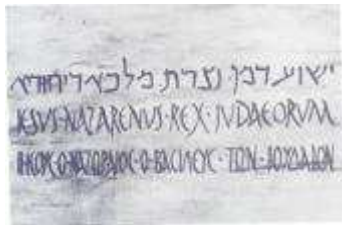 ישוע דמן נצרת מלכא דיהודיא
IESVS·NAZARENVS·REX·IVDAEORVM
ΙΗCΟΥC·Ο·ΝΑΖΩΡΑΙΟC·Ο·ΒΑCΙΛΕΥC·ΤΩΝ·ΙΟΥΔΑΙΩΝ